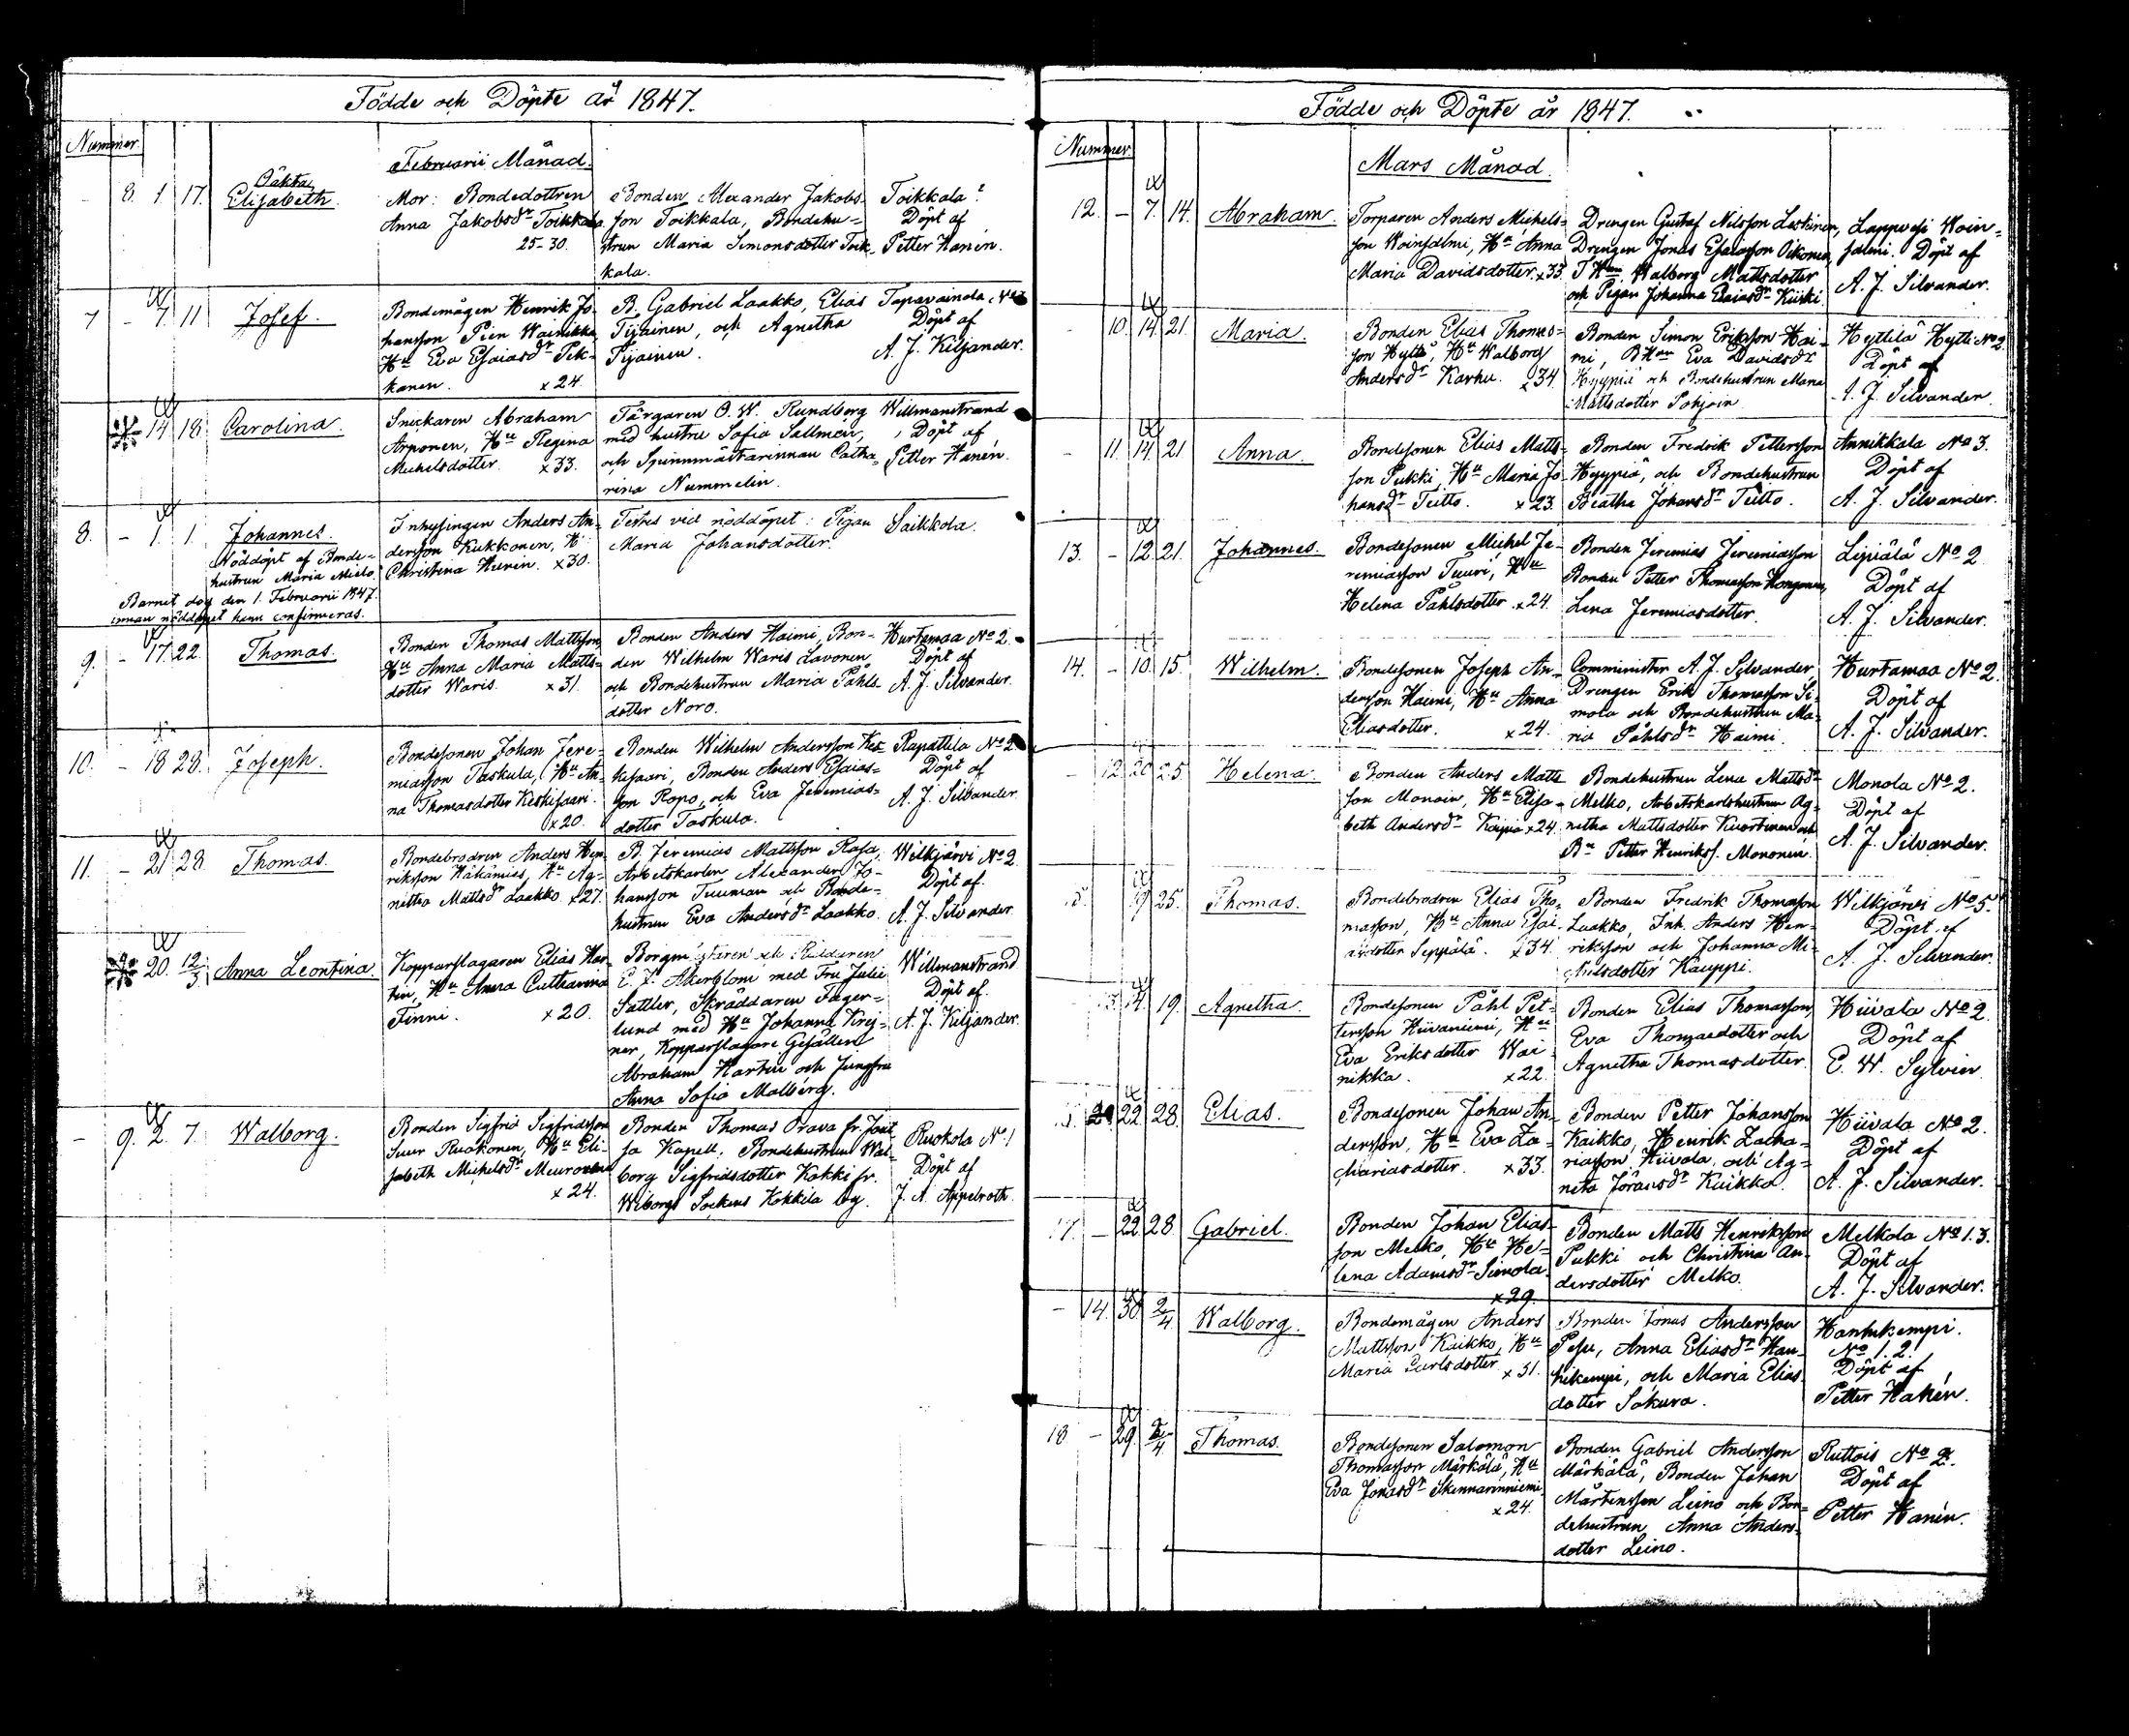 Födde och Döpte år 1847.
Nummer.
Februarii Månad.
8. 1. 17. Oäkta Elisabeth.
Mor: Bondedottren
Anna Jakobsdr Toikkala.
25-30.
Bonden Alexander Jakobs-
son Toikkala, Bondehu-
strun Maria Simonsdotter Toik-
kala.
Toikkala
Döpt af
Petter Hanén.
7 - 7. 11 Josef.
Bondemågen Henrik Jo-
hansson Pien Wainikka
Hu Eva Esaiasdr Pek-
kanen. x 24.
B. Gabriel Laakko, Elias
Tijainen, och Agnetha
Tijainen.
Tapavainola No
Döpt af
A. J. Kiljander.
14 18 Carolina.
Snickaren Abraham
Arponen, Hu Regina
Michelsdotter. x 33.
Färgaren O. W. Rundberg
med hustru Sofia Sallmén,
och Spinnmästarinnan Catha-
rina Nummelin.
Willmanstrand
Döpt af
Petter Hanén.
8. - 1. 1. Johannes.
Nöddöpt af Bonde-
hustrun Maria Mielo.
Barnet dog den 1. Februarii 1847.
innan nöddopet hann confirmeras.
Inhysingen Anders An-
dersson Kukkonen, H:
Christina Hienin. x 30.
Testes vid nöddopet: Pigan
Maria Johansdotter.
Saikkola.
9. - 17. 22. Thomas.
Bonden Thomas Mattsson,
Hu Anna Maria Matts-
dotter Waris. x 31.
Bonden Anders Haimi, Bon-
den Wilhelm Waris Lavonen
och Bondehustrun Maria Påhls-
dotter Noro.
Hurtamaa No 2.
Döpt af
A. J. Silvander.
10. - 18 28. Joseph.
Bondesonen Johan Jere-
miasson Taskula, Hu An-
na Thomasdotter Keskisaari.
x 20.
Bonden Wilhelm Andersson Kes-
kisaari, Bonden Anders Esaias-
son Ropo, och Eva Jeremias-
dotter Taskula.
Rapattila No 2
Döpt af
A. J. Silvander.
11. - 21 28 Thomas.
Bondebrodren Anders Hen-
riksson Hakamies, Hu Ag-
netha Mattsdr Laakko. x 27.
B. Jeremias Mattsson Rasa,
Arbetskarlen Alexander Jo-
hansson Tuuman och Bonde-
hustrun Eva Andersdr Laakko.
Wilkjärvi No 2
Döpt af.
A. J. Silvander
20. 12/3 Anna Leontina.
Kopparslagaren Elias Har-
tin, Hu Anna Catharina
Finni. x 20.
Borgmästaren och Riddaren
E. J. Åkerblom med Fru Julie
Sattler, Skräddaren Fager-
lund med Hu Johanna Krej-
ner, Kopparslagare Gesällen
Abraham Hartin och Jungfru
Anna Sofia Malberg.
Willmanstrand
Döpt af.
A. J. Kiljander.
- 9. 2. 7. Walborg.
Bonden Sigfrid Sigfridsson
Suur Ruokonen, Hu Eli-
sabeth Michelsdr Meuronen
x 24.
Bonden Thomas Orava fr. Jout-
sa Kapell, Bondehustrun Wal-
borg Sigfridsdotter Kokki fr.
Wiborgs Sockens Kokkila by.
Ruokola No 1
Döpt af
J. A. Appelroth.
Födde och Döpte år 1847.
Nummer.
Mars Månad.
12. - 7. 14. Abraham.
Torparen Anders Michels-
son Woinsalmi, Hu Anna
Maria Davidsdotter. x 33.
Drengen Gustaf Nilsson Laskinen,
Drengen Jonas Esaiasson Oikonen,
T Hun Walborg Mattsdotter
och Pigan Johanna Esaiasdr Kiiski.
Lappvesi Woin-
salmi. Döpt af
A. J. Silvander.
- 10. 14 21. Maria.
Bonden Elias Thomas-
son Hytti, Hu Walborg
Andersdr Karhu. x 34.
Bonden Simon Eriksson Hai-
mi, BHun Eva Davidsdr
Hyypiä och Bondehustrun Maria
Mattsdotter Pohjoin.
Hyttilä Hytti No 2.
Döpt af
A. J. Silvander.
- 11. 14. 21 Anna.
Bondesonen Elias Matts-
son Pukki, Hu Maria Jo-
hansdr Teitto. x 23.
Bonden Fredrik Pettersson
Hyypiä, och Bondehustrun
Beatha Johansdr Teitto.
Annikkala No 3.
Döpt af
A. J. Silvander.
13. - 12. 21. Johannes.
Bondesonen Michel Je-
remiasson Tuuri, Hu
Helena Påhlsdotter. x 24.
Bonden Jeremias Jeremiasson
Bonden Petter Thomasson Hongonen,
Lena Jeremiasdotter.
Lyiälä No 2
Döpt af
A. J. Silvander.
14. - 10. 15. Wilhelm.
Bondesonen Joseph An-
dersson Haimi, Hu Anna
Eliasdotter. x 24.
Comminister A. J. Silvander,
Drengen Erik Thomasson Si-
mola och Bondehustrun Ma-
ria Påhlsdr Haimi.
Hurtamaa No 2.
Döpt af
A. J. Silvander.
- 12. 20 25. Helena.
Bonden Anders Matts-
son Monoin, Hu Elisa-
beth Andersdr Kaipia x 24.
Bondehustrun Lena Mattsdr
Melko, Arbetskarlshustrun Ag-
netha Mattsdotter Kuortinen och
Bn Petter Henrikss. Mononen.
Monola No 2.
Döpt af
A. J. Silvander.
15. 19 25. Thomas.
Bondebrodren Elias Tho-
masson, Hu Anna Esai-
asdotter Seppälä. x 34.
Bonden Fredrik Thomasson
Laakko, Inh. Anders Hen-
riksson och Johanna Mi-
chelsdotter Kauppi.
Wilkjärvi No 5.
Döpt af
A. J. Silvander.
13. 14. 19. Agnetha.
Bondesonen Påhl Pet-
tersson Hiivaniemi, Hu
Eva Eriksdotter Wai-
nikka. x 22.
Bonden Elias Thomasson,
Eva Thomasdotter och
Agnetha Thomasdotter.
Hiivala No 2.
Döpt af
E. W. Sylvin.
22. 28. Elias.
Bondesonen Johan An-
dersson, Hu Eva Za-
chariasdotter. x 33.
Bonden Petter Johansson
Kaikko, Henrik Zacha-
riasson Hiivala, och Ag-
neta Göransdr Kaikko.
Hiivala No 2.
Döpt af
A. J. Silvander.
17. - 22. 28. Gabriel.
Bonden Johan Elias-
son Melko, Hu He-
lena Adamsdr Simola.
x 29.
Bonden Matts Henriksson
Pukki och Christina An-
dersdotter Melko.
Melkola No 1. 3.
Döpt af
A. J. Silvander.
- 14. 30. 2/4. Walborg.
Bondemågen Anders
Mattsson Kaikko, Hu
Maria Carlsdotter. x 31.
Bonden Jonas Andersson
Pesu, Anna Eliasdr Han-
hikempi, och Maria Elias-
dotter Sakura.
Hanhikempi.
No 1. 2.
Döpt af
Petter Hanén.
18 - 29. 2/4 Thomas.
Bondesonen Salomon
Thomasson Märkälä, Hu
Eva Jonasdr Skinnarinniemi
x 24.
Bonden Gabriel Andersson
Märkälä, Bonden Johan
Mårtensson Leino och Bon-
dehustrun Anna Anders-
dotter Leino.
Ruttois No 2.
Döpt af
Petter Hanén.